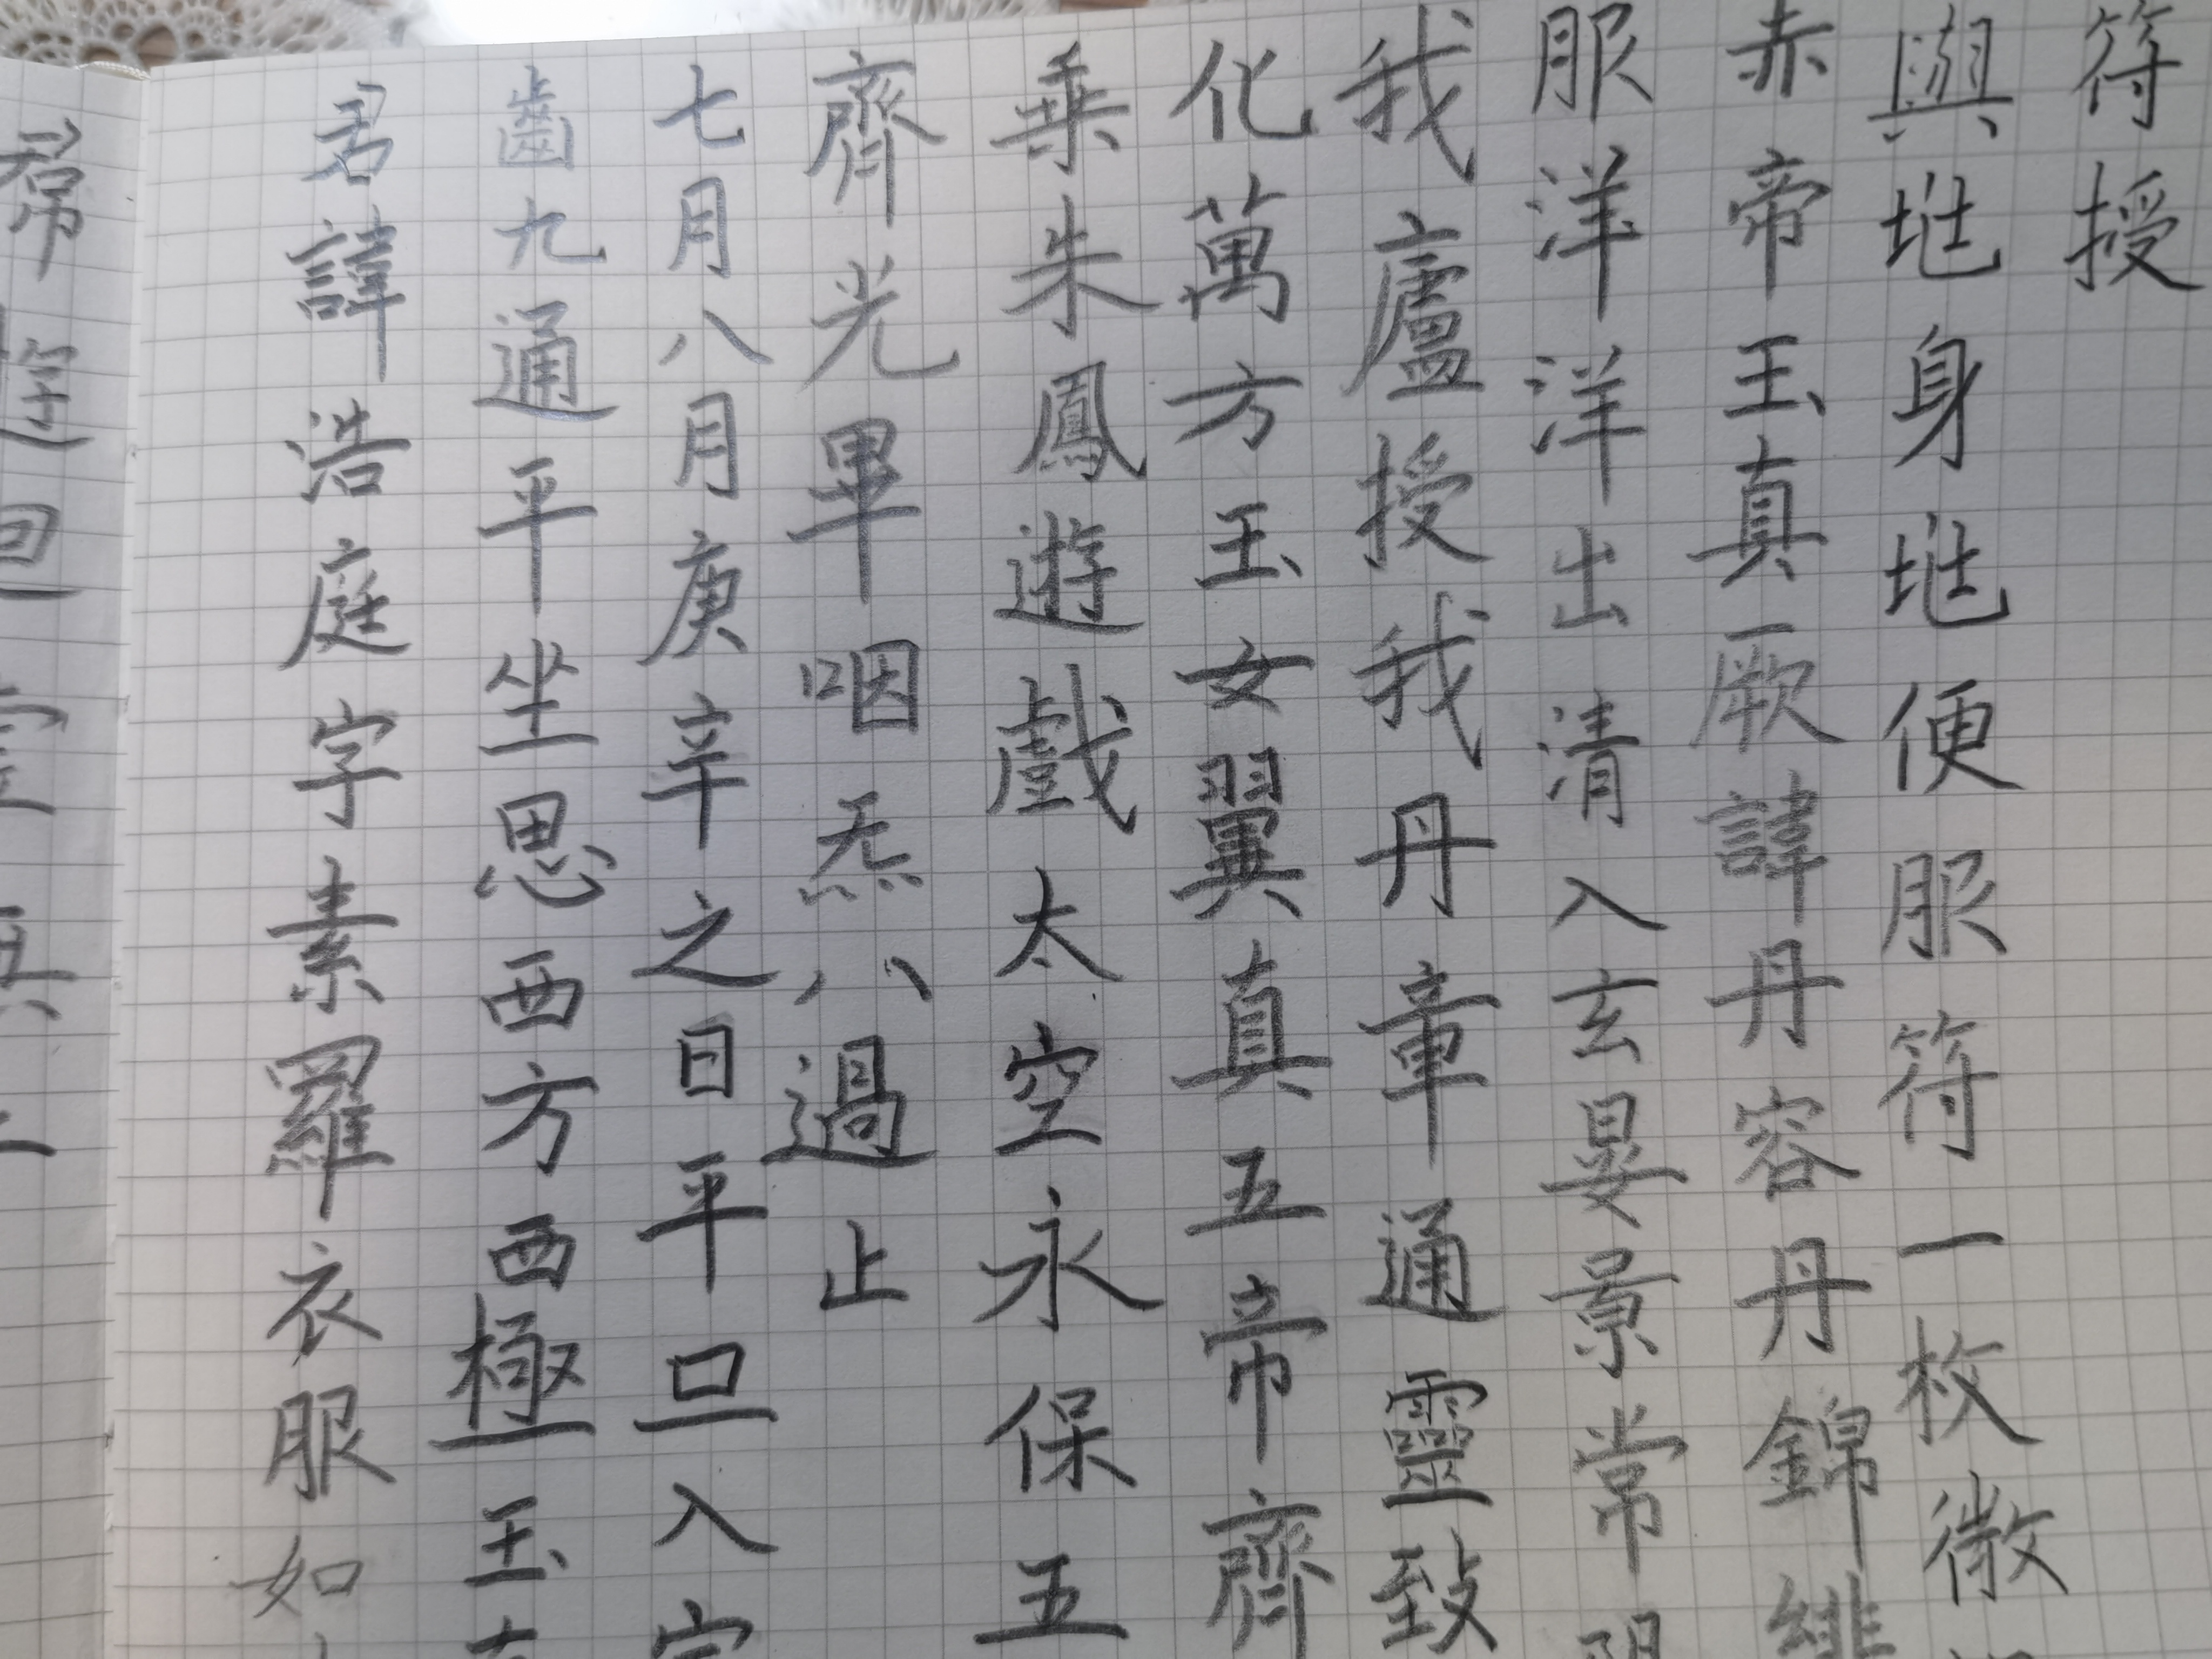 符授
與地身地便服符一枚微
赤帝玉真厥諱丹容丹錦緋
服洋洋出清入玄晏景常陽
我廬授我丹章通靈致
化萬方玉女翼真五帝齊
乗朱鳳遊戲太空永保五
齊光畢咽炁八過止
七月八月庚辛之日平旦入室
齒九通平坐思西方西極玉真
君諱浩庭字素羅衣服如